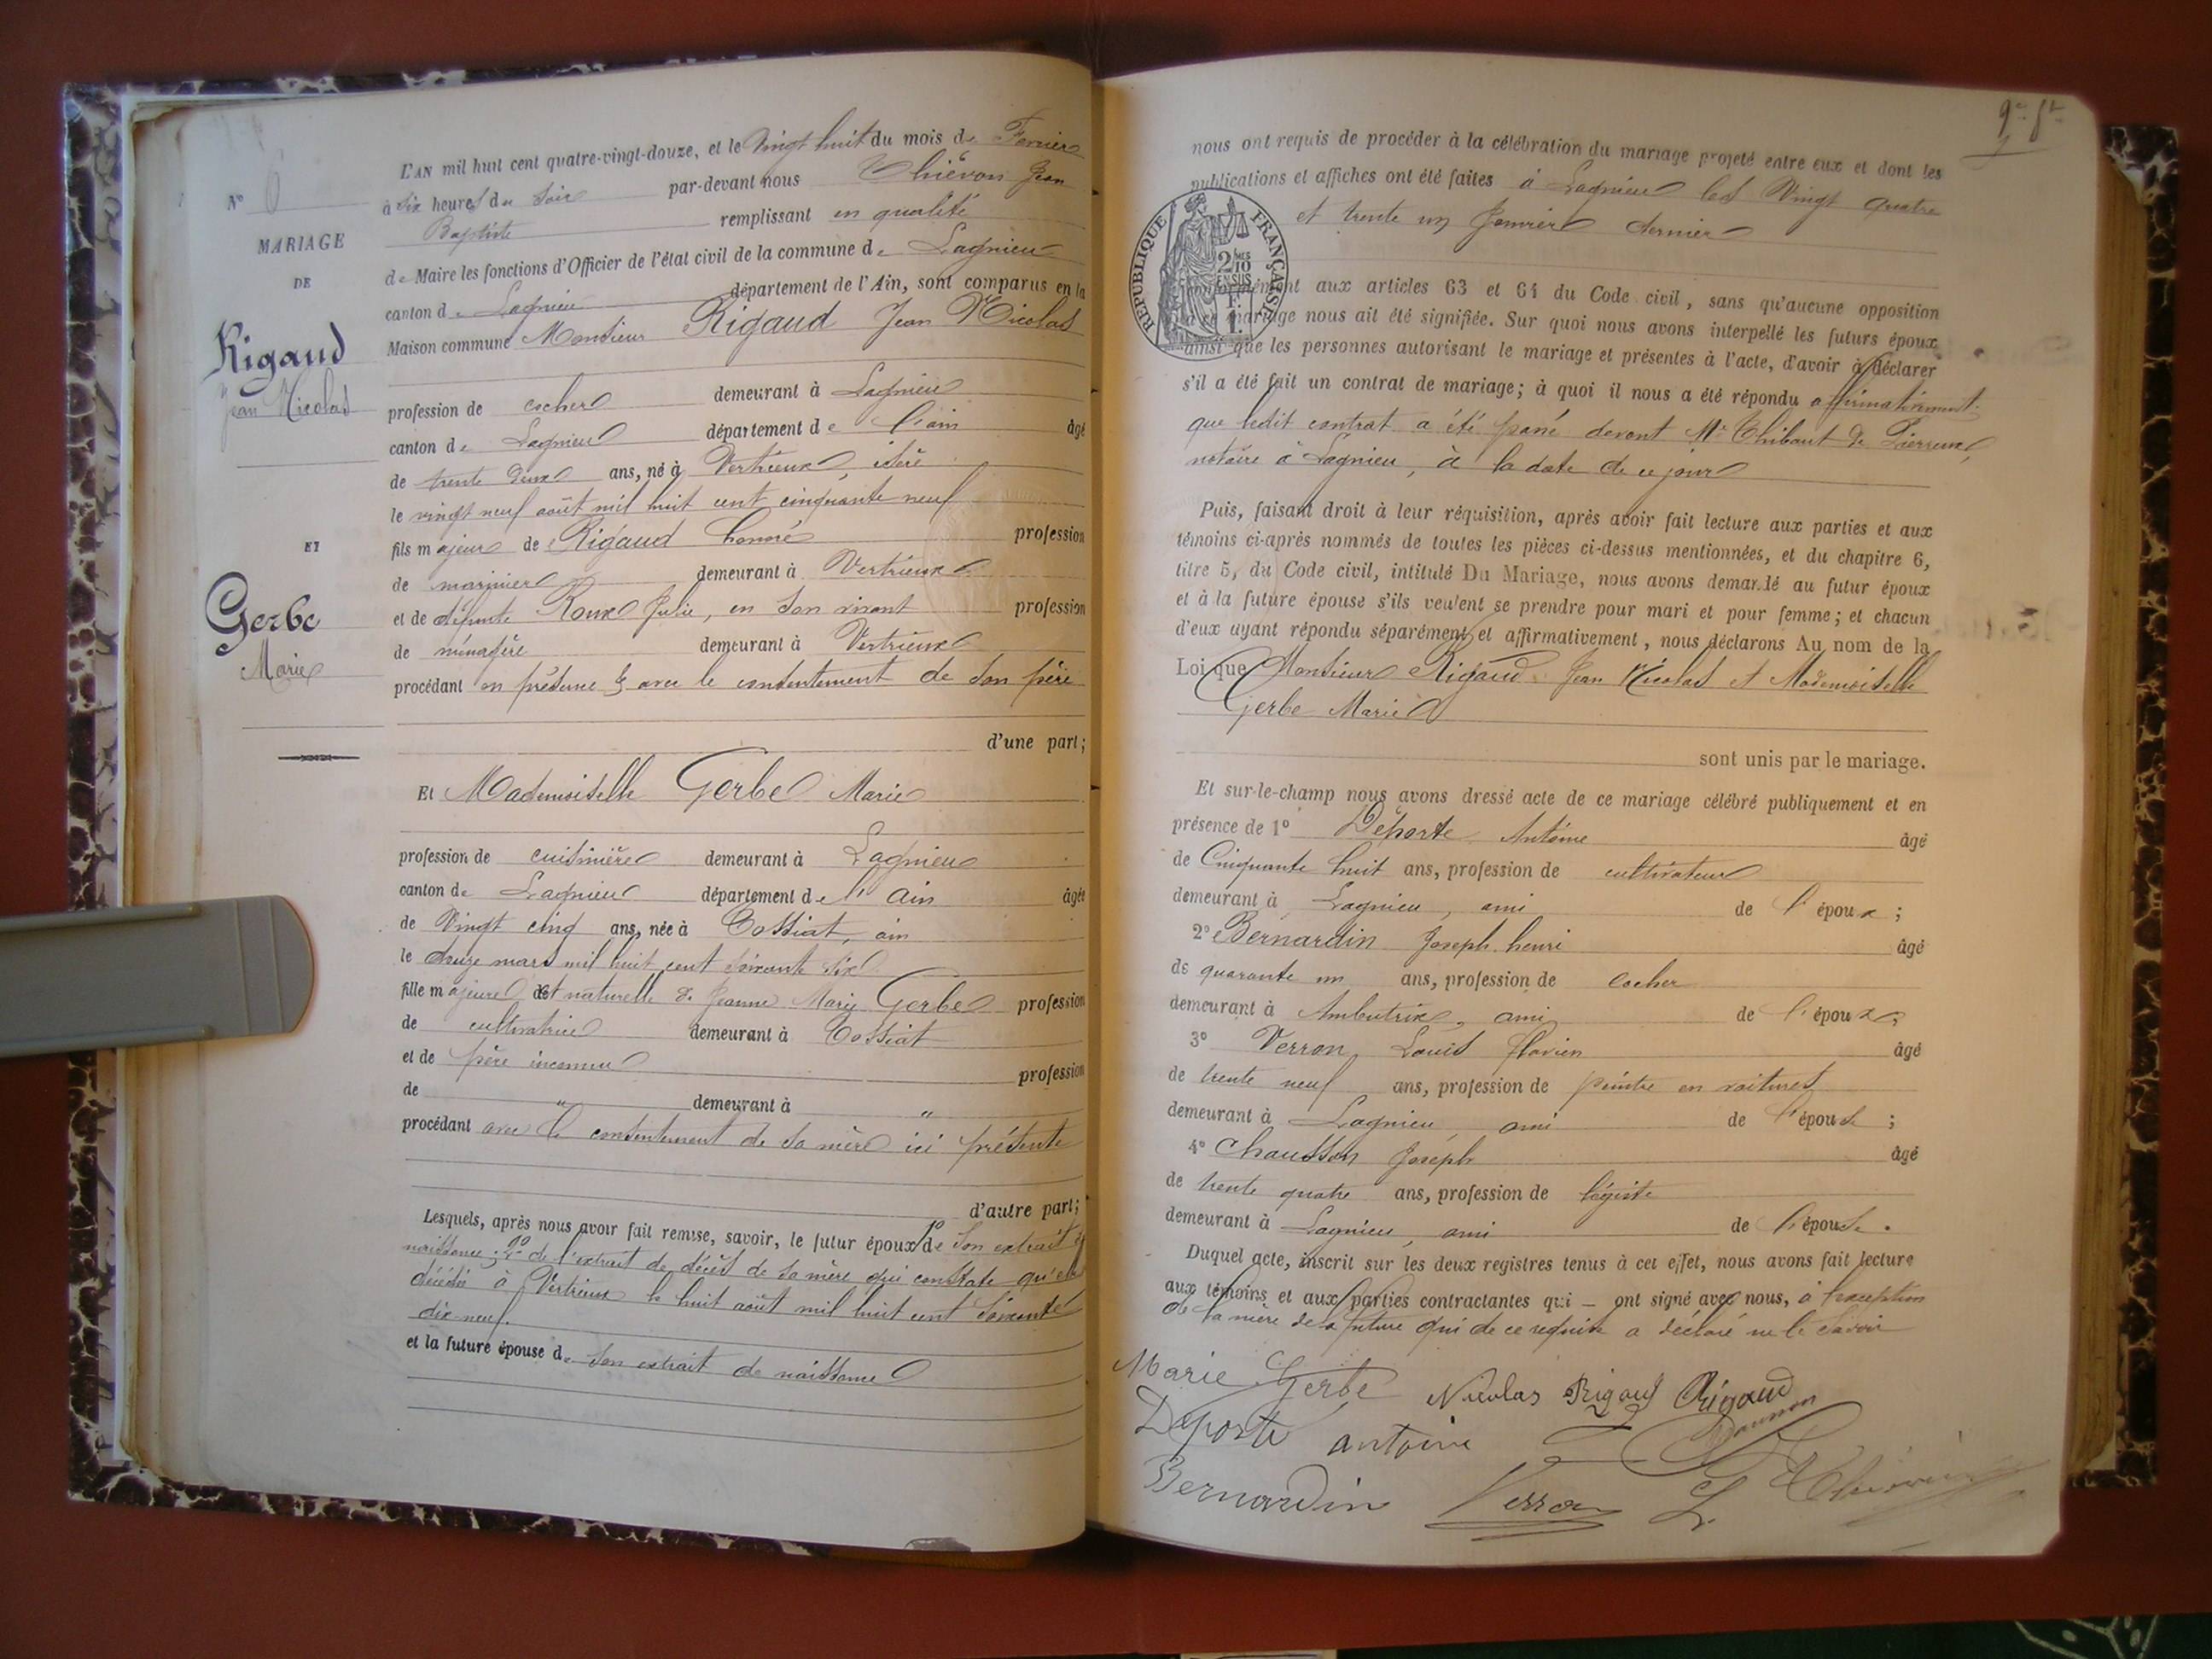 L'AN mil huit cent quatre-vingt-douze, et le Vingt huit du mois de Fevrier
à six heures du soir par-devant nous Thiévon Jean
Baptiste remplissant en qualité
de Maire les fonctions d'Officier de l'état civil de la commune de Lagnieu
canton de Lagnieu département de l'Ain, sont comparus en la
Maison commune Monsieur Rigaud Jean Nicolas
profession de cocher demeurant à Lagnieu
canton de Lagnieu département de l'ain âgé
de trente deux ans, né à Vertrieux, isère
le vingt neuf août mil huit cent cinquante neuf
fils majeur de Rigaud honoré profession
de marinier demeurant à Vertrieux
et de défunte Roux Julie, en son vivant profession
de ménagère demeurant à Vertrieux
procédant en présence & avec le consentement de son père
d'une part;
Et Mademoiselle Gerbe Marie
profession de cuisinière demeurant à Lagnieu
canton de Lagnieu département de l'ain âgée
de Vingt cinq ans, née à Tossiat, ain
le douze mars mil huit cent soixante six
fille majeure et naturelle de Jeanne Marie Gerbe profession
de cultivatrice demeurant à Tossiat
et de père inconnu profession
de " demeurant à "
procédant avec le consentement de sa mère ici présente
d'autre part;
Lesquels, après nous avoir fait remise, savoir, le futur époux 1° de son extrait de
naissance; 2° de l'extrait de décès de sa mère qui constate qu'elle
décédée à Vertrieux le huit août mil huit cent soixante
dix-neuf.
et la future épouse de son extrait de naissance
N°
MARIAGE
DE
Rigaud
Jean Nicolas
ET
Gerbe
Marie
nous ont requis de procéder à la célébration du mariage projeté entre eux et dont les
publications et affiches ont été faites à Lagnieu les Vingt quatre
et trente un Janvier dernier
RÉPUBLIQUE FRANÇAISE
2/10 EN SUS
1 F.
conformément aux articles 63 et 64 du Code civil, sans qu'aucune opposition
à ce mariage nous ait été signifiée. Sur quoi nous avons interpellé les futurs époux,
ainsi que les personnes autorisant le mariage et présentes à l'acte, d'avoir à déclarer
s'il a été fait un contrat de mariage; à quoi il nous a été répondu affirmativement;
que ledit contrat a été passé devant Me Thibaut de Pierreux,
notaire à Lagnieu, à la date de ce jour
Puis, faisant droit à leur réquisition, après avoir fait lecture aux parties et aux
témoins ci-après nommés de toutes les pièces ci-dessus mentionnées, et du chapitre 6,
titre 5, du Code civil, intitulé Du Mariage, nous avons demandé au futur époux
et à la future épouse s'ils veulent se prendre pour mari et pour femme; et chacun
d'eux ayant répondu séparément et affirmativement, nous déclarons Au nom de la
Loi que Monsieur Rigaud Jean Nicolas et Mademoiselle
Gerbe Marie
sont unis par le mariage.
Et sur-le-champ nous avons dressé acte de ce mariage célébré publiquement et en
présence de 1° Déporte Antoine âgé
de Cinquante huit ans, profession de cultivateur
demeurant à Lagnieu, ami de l'époux;
2° Bernardin Joseph henri âgé
de quarante un ans, profession de cocher
demeurant à Ambutrix, ami de l'époux;
3° Verron Louis flavien âgé
de trente neuf ans, profession de peintre en voitures
demeurant à Lagnieu, ami de l'épouse;
4° Chausson Joseph âgé
de trente quatre ans, profession de légiste
demeurant à Lagnieu, ami de l'épouse.
Duquel acte, inscrit sur les deux registres tenus à cet effet, nous avons fait lecture
aux témoins et aux parties contractantes qui – ont signé avec nous, à l'exception
de la mère de la future qui de ce requise a déclaré ne le savoir
Marie Gerbe Nicolas Rigaud Rigaud
Deporte antoine
Bernardin Verron